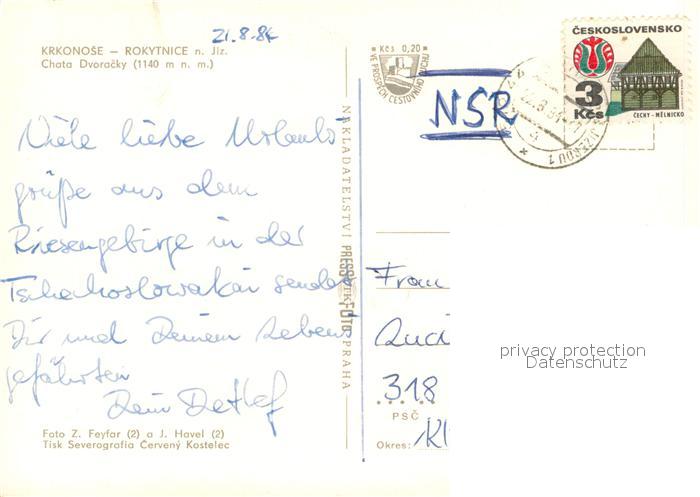 21.8.84
KRKONOŠE – ROKYTNICE n. Jiz.
Chata Dvoračky (1140 m n. m.)
Viele liebe Urlaubs
grüße aus dem
Riesengebirge in der
Tschechoslowakai sendet
Dir und Deinem Lebens
gefährten
Dein Detlef
Foto Z. Feyfar (2) a J. Havel (2)
Tisk Severografia Červený Kostelec
NAKLADATELSTVÍ PRESSFOTO PRAHA
Kčs 0,20
VE PROSPĚCH CESTOVNÍHO RUCHU
NSR
ČESKOSLOVENSKO
3
Kčs
ČECHY - MĚLNICKO
Frau
318
PSČ
Okres:
privacy protection
Datenschutz